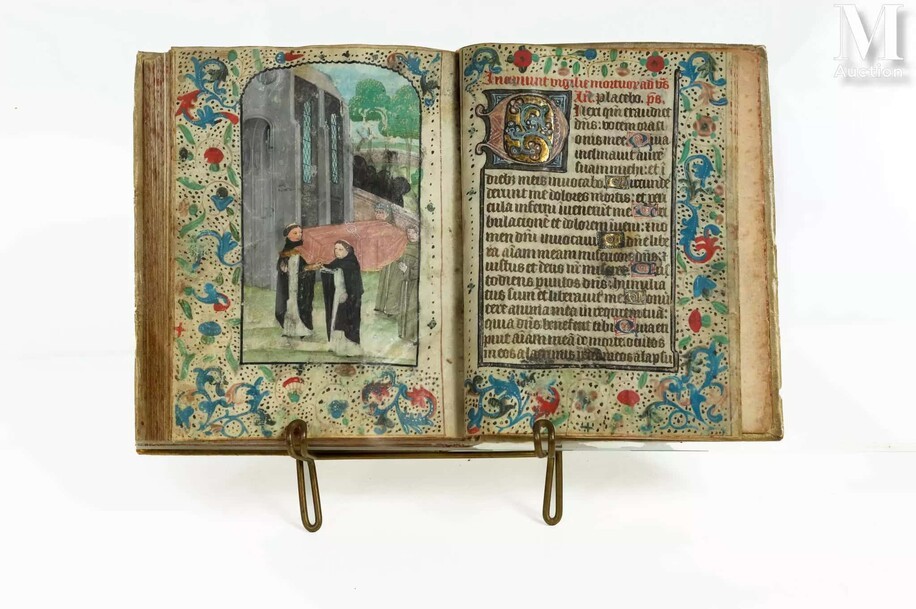 M
Auction
Incipiunt vigilie mortuoru ad vs
Añ. placebo. ps.
Dilexi qm̃ exaudiet
dñs: vocem orati
onis mee. Quia
inclinauit aurē
suam michi: et i
dieb; meis inuocabo. Circunde
derunt me dolores mortis: et peri
cula inferni inuenerūt me. Tri
bulacionē et dolorem inueni: et no
men dñi inuocaui. O dñe libe
ra aīam meam misericors dñs: et
iustus et deus nr̃ miseret. Custo
todiens paruulos dñs: humilia
tus sum et liberauit me. Conu
ertere anima mea in requiem tuā:
quia dñs benefecit tibi. Quia eri
puit aīam meā de morte: oculos
meos a lacrimis pedes meos a lapsu